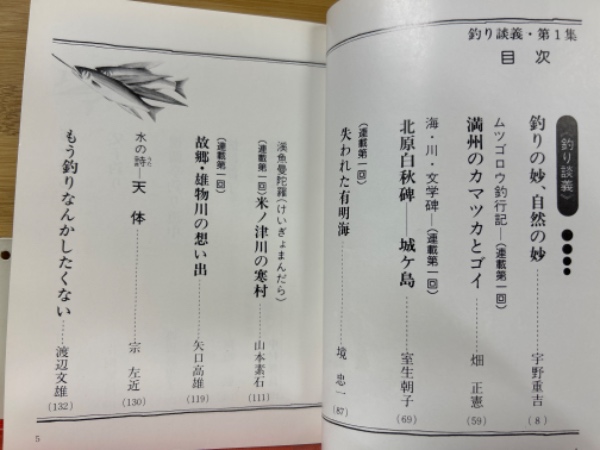 釣り談義・第1集
目次
〈釣り談義〉
釣りの妙、自然の妙……宇野重吉(8)
ムツゴロウ釣行記―(連載第一回)
満州のカマツカとゴイ……畑正憲(59)
海・川・文学碑―(連載第一回)
北原白秋碑――城ケ島……室生朝子(69)
(連載第一回)
失われた有明海……境忠一(87)
渓魚曼陀羅(けいぎょまんだら)
(連載第一回)米ノ津川の寒村……山本素石(111)
(連載第一回)
故郷・雄物川の想い出……矢口高雄(119)
水の詩―天体……宗左近(130)
うた
もう釣りなんかしたくない……渡辺文雄(132)
5